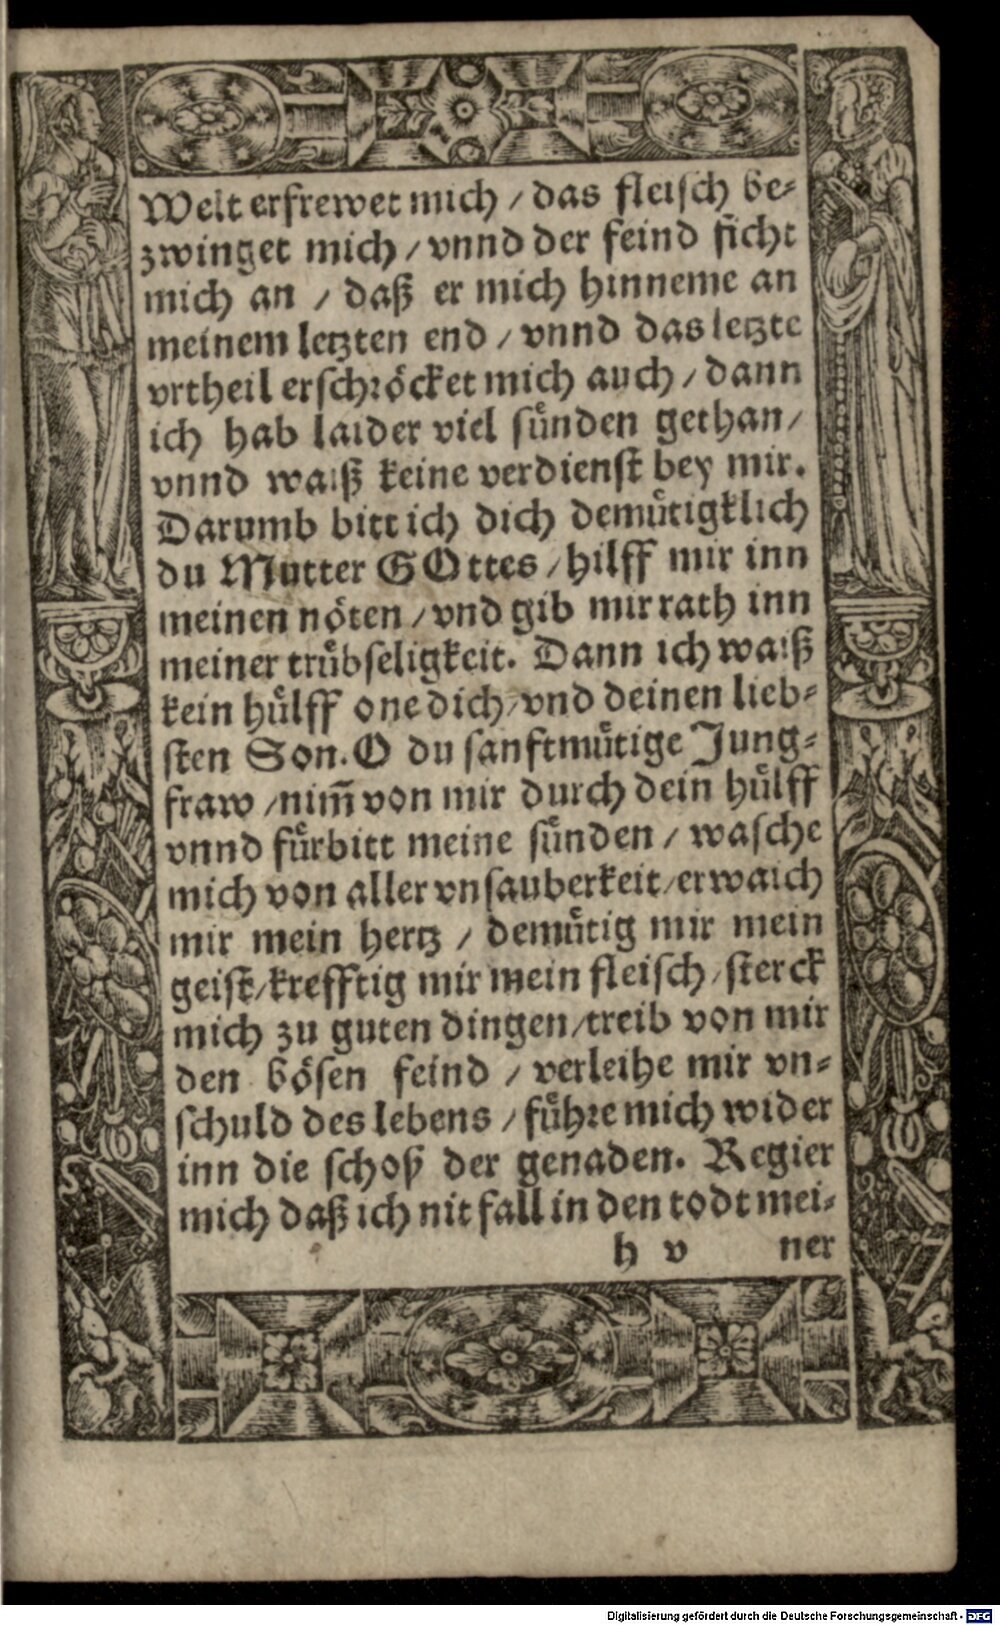 Welt erfrewet mich / das fleisch be-
zwinget mich / vnnd der feind ficht
mich an / daß er mich hinneme an
meinem letzten end / vnnd das letzte
vrtheil erschröcket mich auch / dann
ich hab laider viel sünden gethan /
vnnd waiß keine verdienst bey mir.
Darumb bitt ich dich demütigklich
du Mutter GOttes / hilff mir inn
meinen nöten / vnd gib mir rath inn
meiner trübseligkeit. Dann ich waiß
kein hülff one dich / vnd deinen lieb-
sten Son. O du sanftmütige Jung-
fraw / nim̃ von mir durch dein hülff
vnnd fürbitt meine sünden / wasche
mich von aller vnsauberkeit / erwaich
mir mein hertz / demütig mir mein
geist / krefftig mir mein fleisch / sterck
mich zu guten dingen / treib von mir
den bösen feind / verleihe mir vn-
schuld des lebens / führe mich wider
inn die schoß der genaden. Regier
mich daß ich nit fall in den todt mei-
h v ner
Digitalisierung gefördert durch die Deutsche Forschungsgemeinschaft - DFG